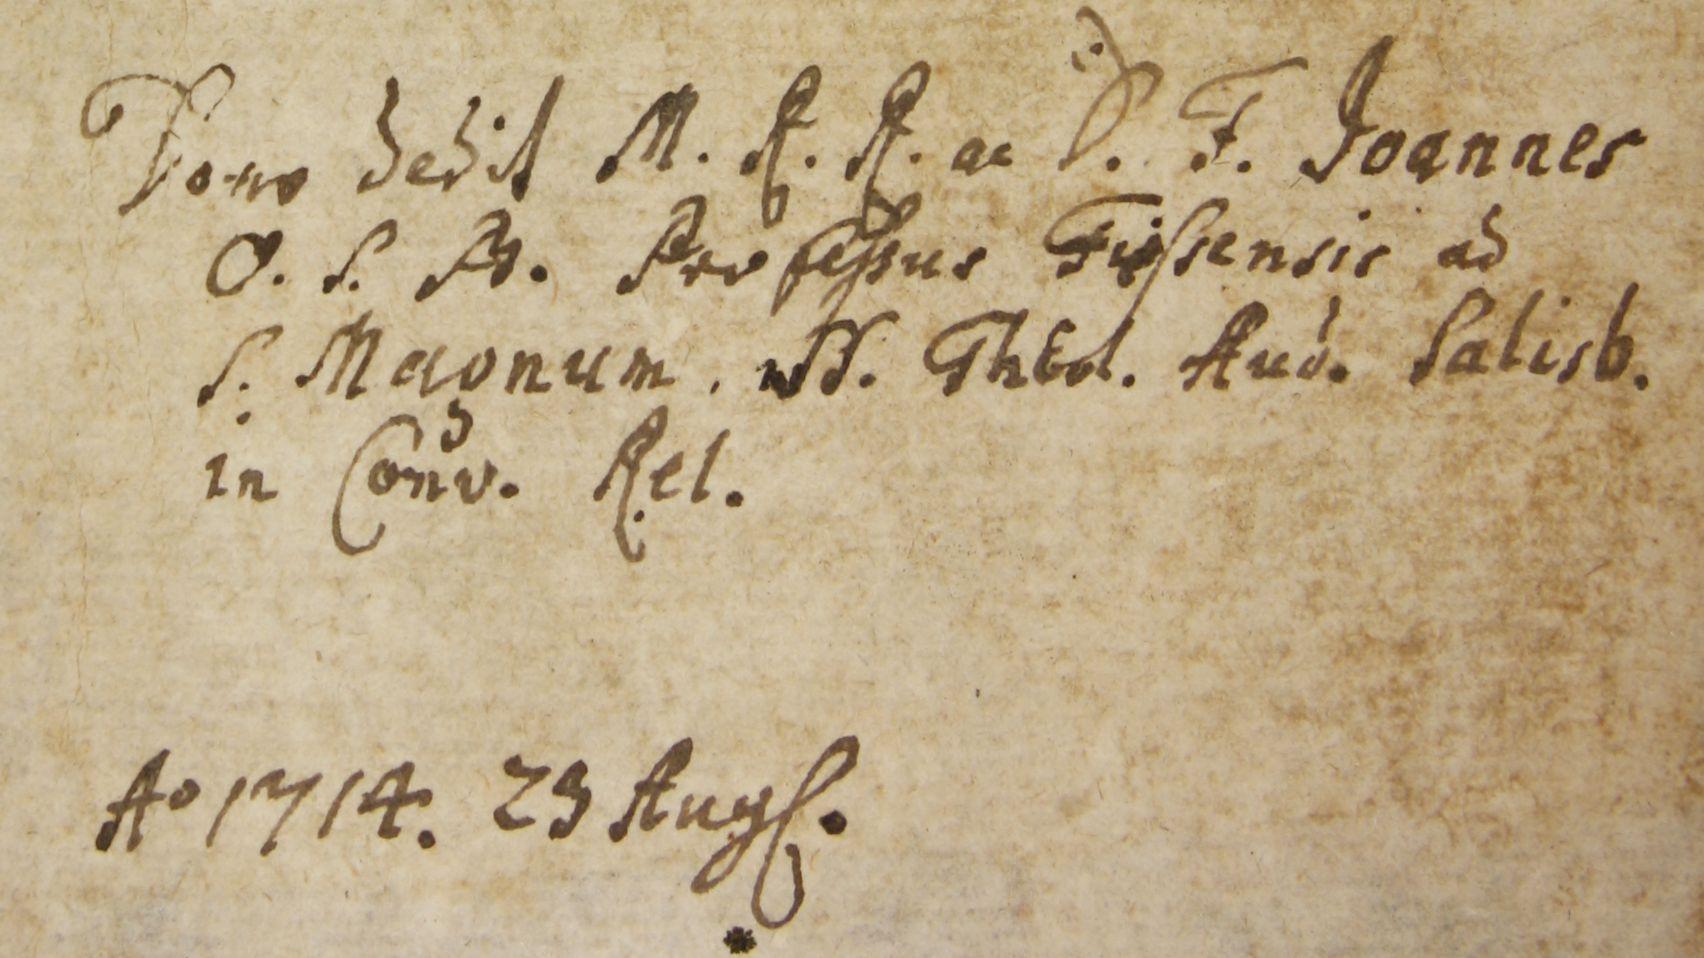 Dono dedit M. R. R. ac D. F. Joannes
O. S. B. Professus Fiessensis ad
S. Magnum, SS. Theol. Aud. Salisb.
in Conv. Rel.
Ao 1714. 23 Augs.